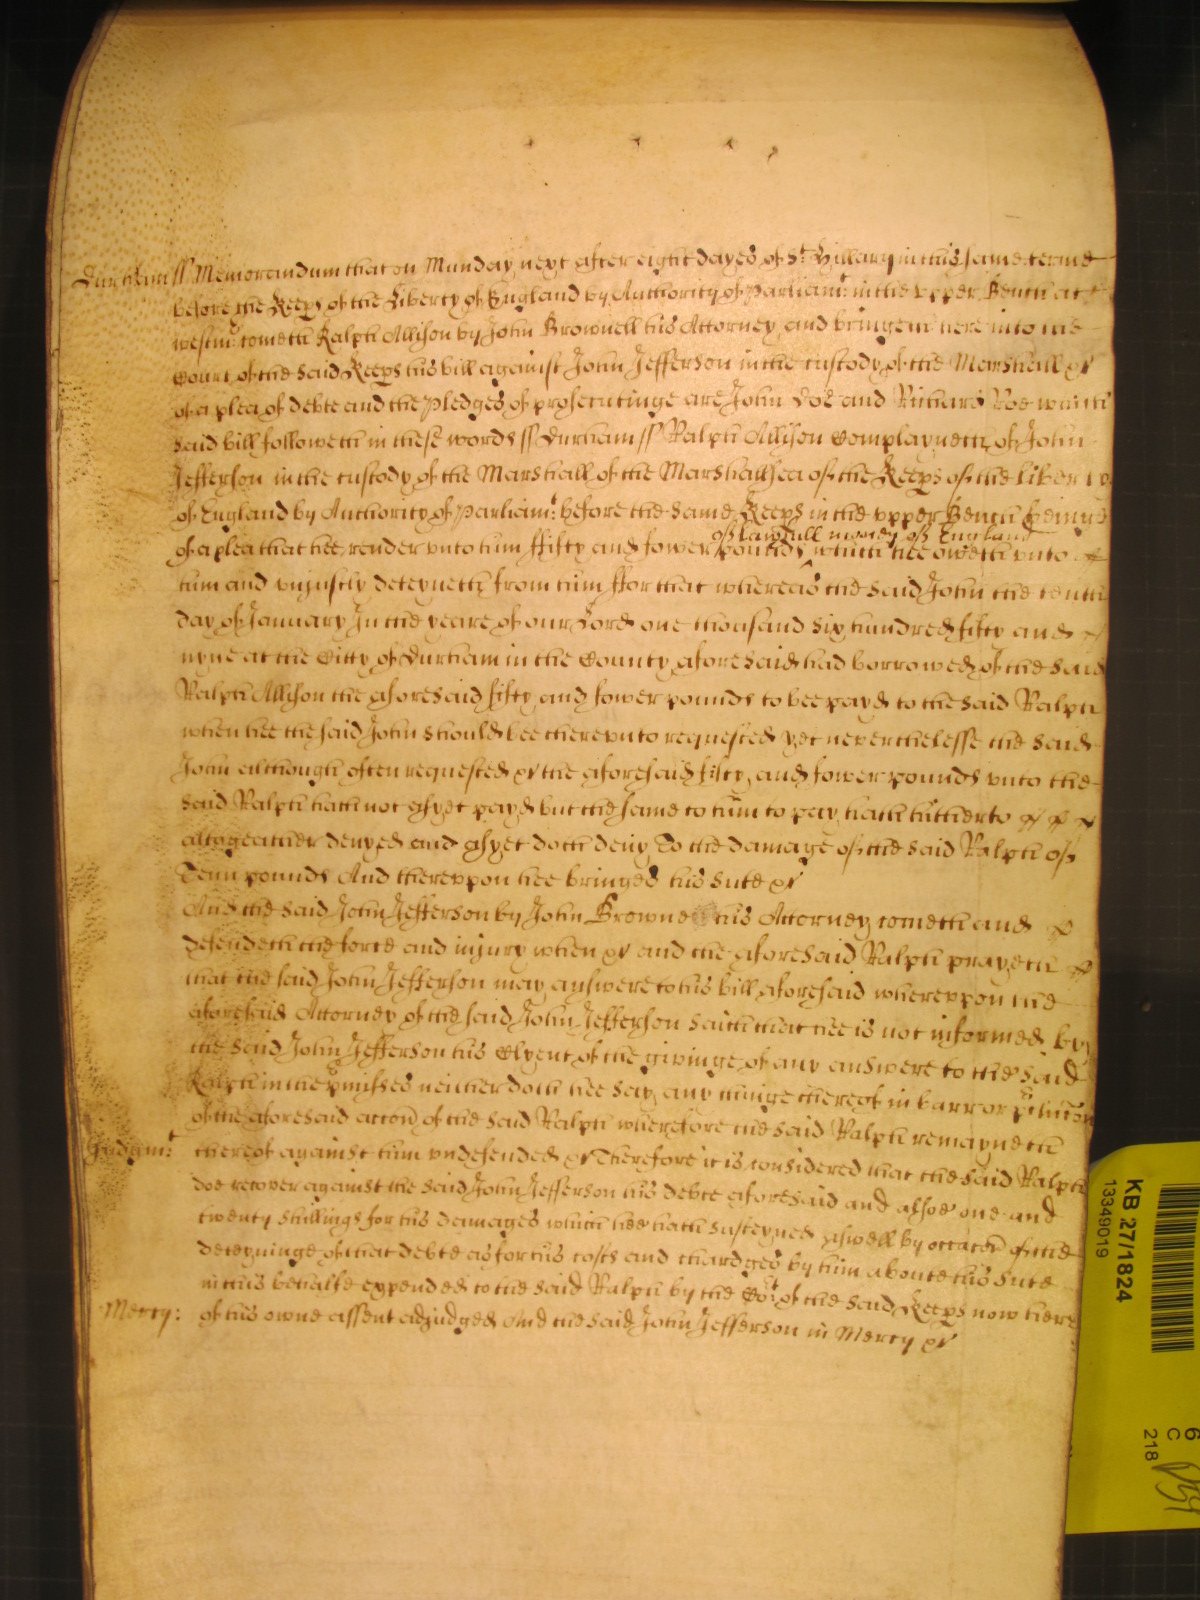 Durham ss Memorandum that on Munday next after eight dayes of St Hillary in this same terme
before the Keeps of the Liberty of England by Authority of Parliamt: in the vpper Bench at
Westmr: cometh Ralph Allison by John Brownell his Attorney and bringeth here into the
Court of the said Keeps his bill against John Jefferson in the custody of the Marshall &c
of a plea of debte and the Pledges of prosecutinge are John Doe and Richard Roe which
said bill followeth in these words ss Durham ss Ralph Allison Complayneth of John
Jefferson in the custody of the Marshall of the Marshallsea of the Keeps of the liberty
of England by Authority of Parliamt: before the same Keeps in the vpper Bench beinge
of lawfull money of England
of a plea that hee render vnto him ffifty and fower pounds which hee oweth vnto
him and vnjustly deteyneth from him ffor that whereas the said John the tenth
day of January In the yeare of our Lord one thousand six hundred fifty and
nyne at the Citty of Durham in the County aforesaid had borrowed of the said
Ralph Allison the aforesaid fifty and fower pounds to bee payd to the said Ralph
when hee the said John should bee therevnto requested yet neverthelesse the said
John although often requested &c the aforesaid fifty and fower pounds vnto the
said Ralph hath not as yet payd but the same to him to pay hath hitherto
altogeather denyed and as yet doth deny To the damage of the said Ralph of
Tenn pounds And therevpon hee bringes his sute &c
And the said John Jefferson by John Browne his Attorney cometh and
defendeth the force and injury when &c and the aforesaid Ralph prayeth
that the said John Jefferson may answere to his bill aforesaid wherevpon the
aforesaid Attorney of the said John Jefferson saith that hee is not informed by
the said John Jefferson his Clyent of the givinge of any answere to the said
Ralph in the pmisses neither doth hee say any thinge thereof in barr or
of the aforesaid accon of the said Ralph wherefore the said Ralph remayneth
Judgmt: thereof against him vndefended &c Therefore it is considered that the said Ralph
doe recover against the said John Jefferson his debte aforesaid and alsoe one and
twenty shillings for his damages which hee hath susteyned aswell by occacon of the
deteyninge of that debte as for his costs and chardges by him aboute his sute
in this behalfe expended to the said Ralph by the Cort of the said Keeps now here
Mercy: of his owne assent adjudged And the said John Jefferson in Mercy &c
KB 27/1824
13349019
6
C
218